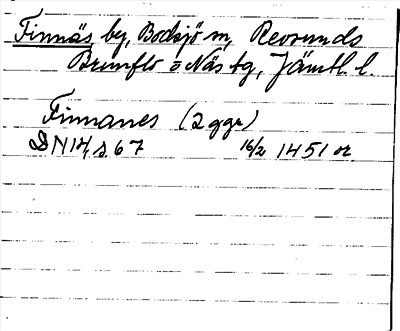 Finnäs by, Bodsjö sn, Revsunds
Brunflo o Näs tg, Jämtl. l.
Finnanes (2 ggr)
DN 14, s. 67 16/2 1451 or.